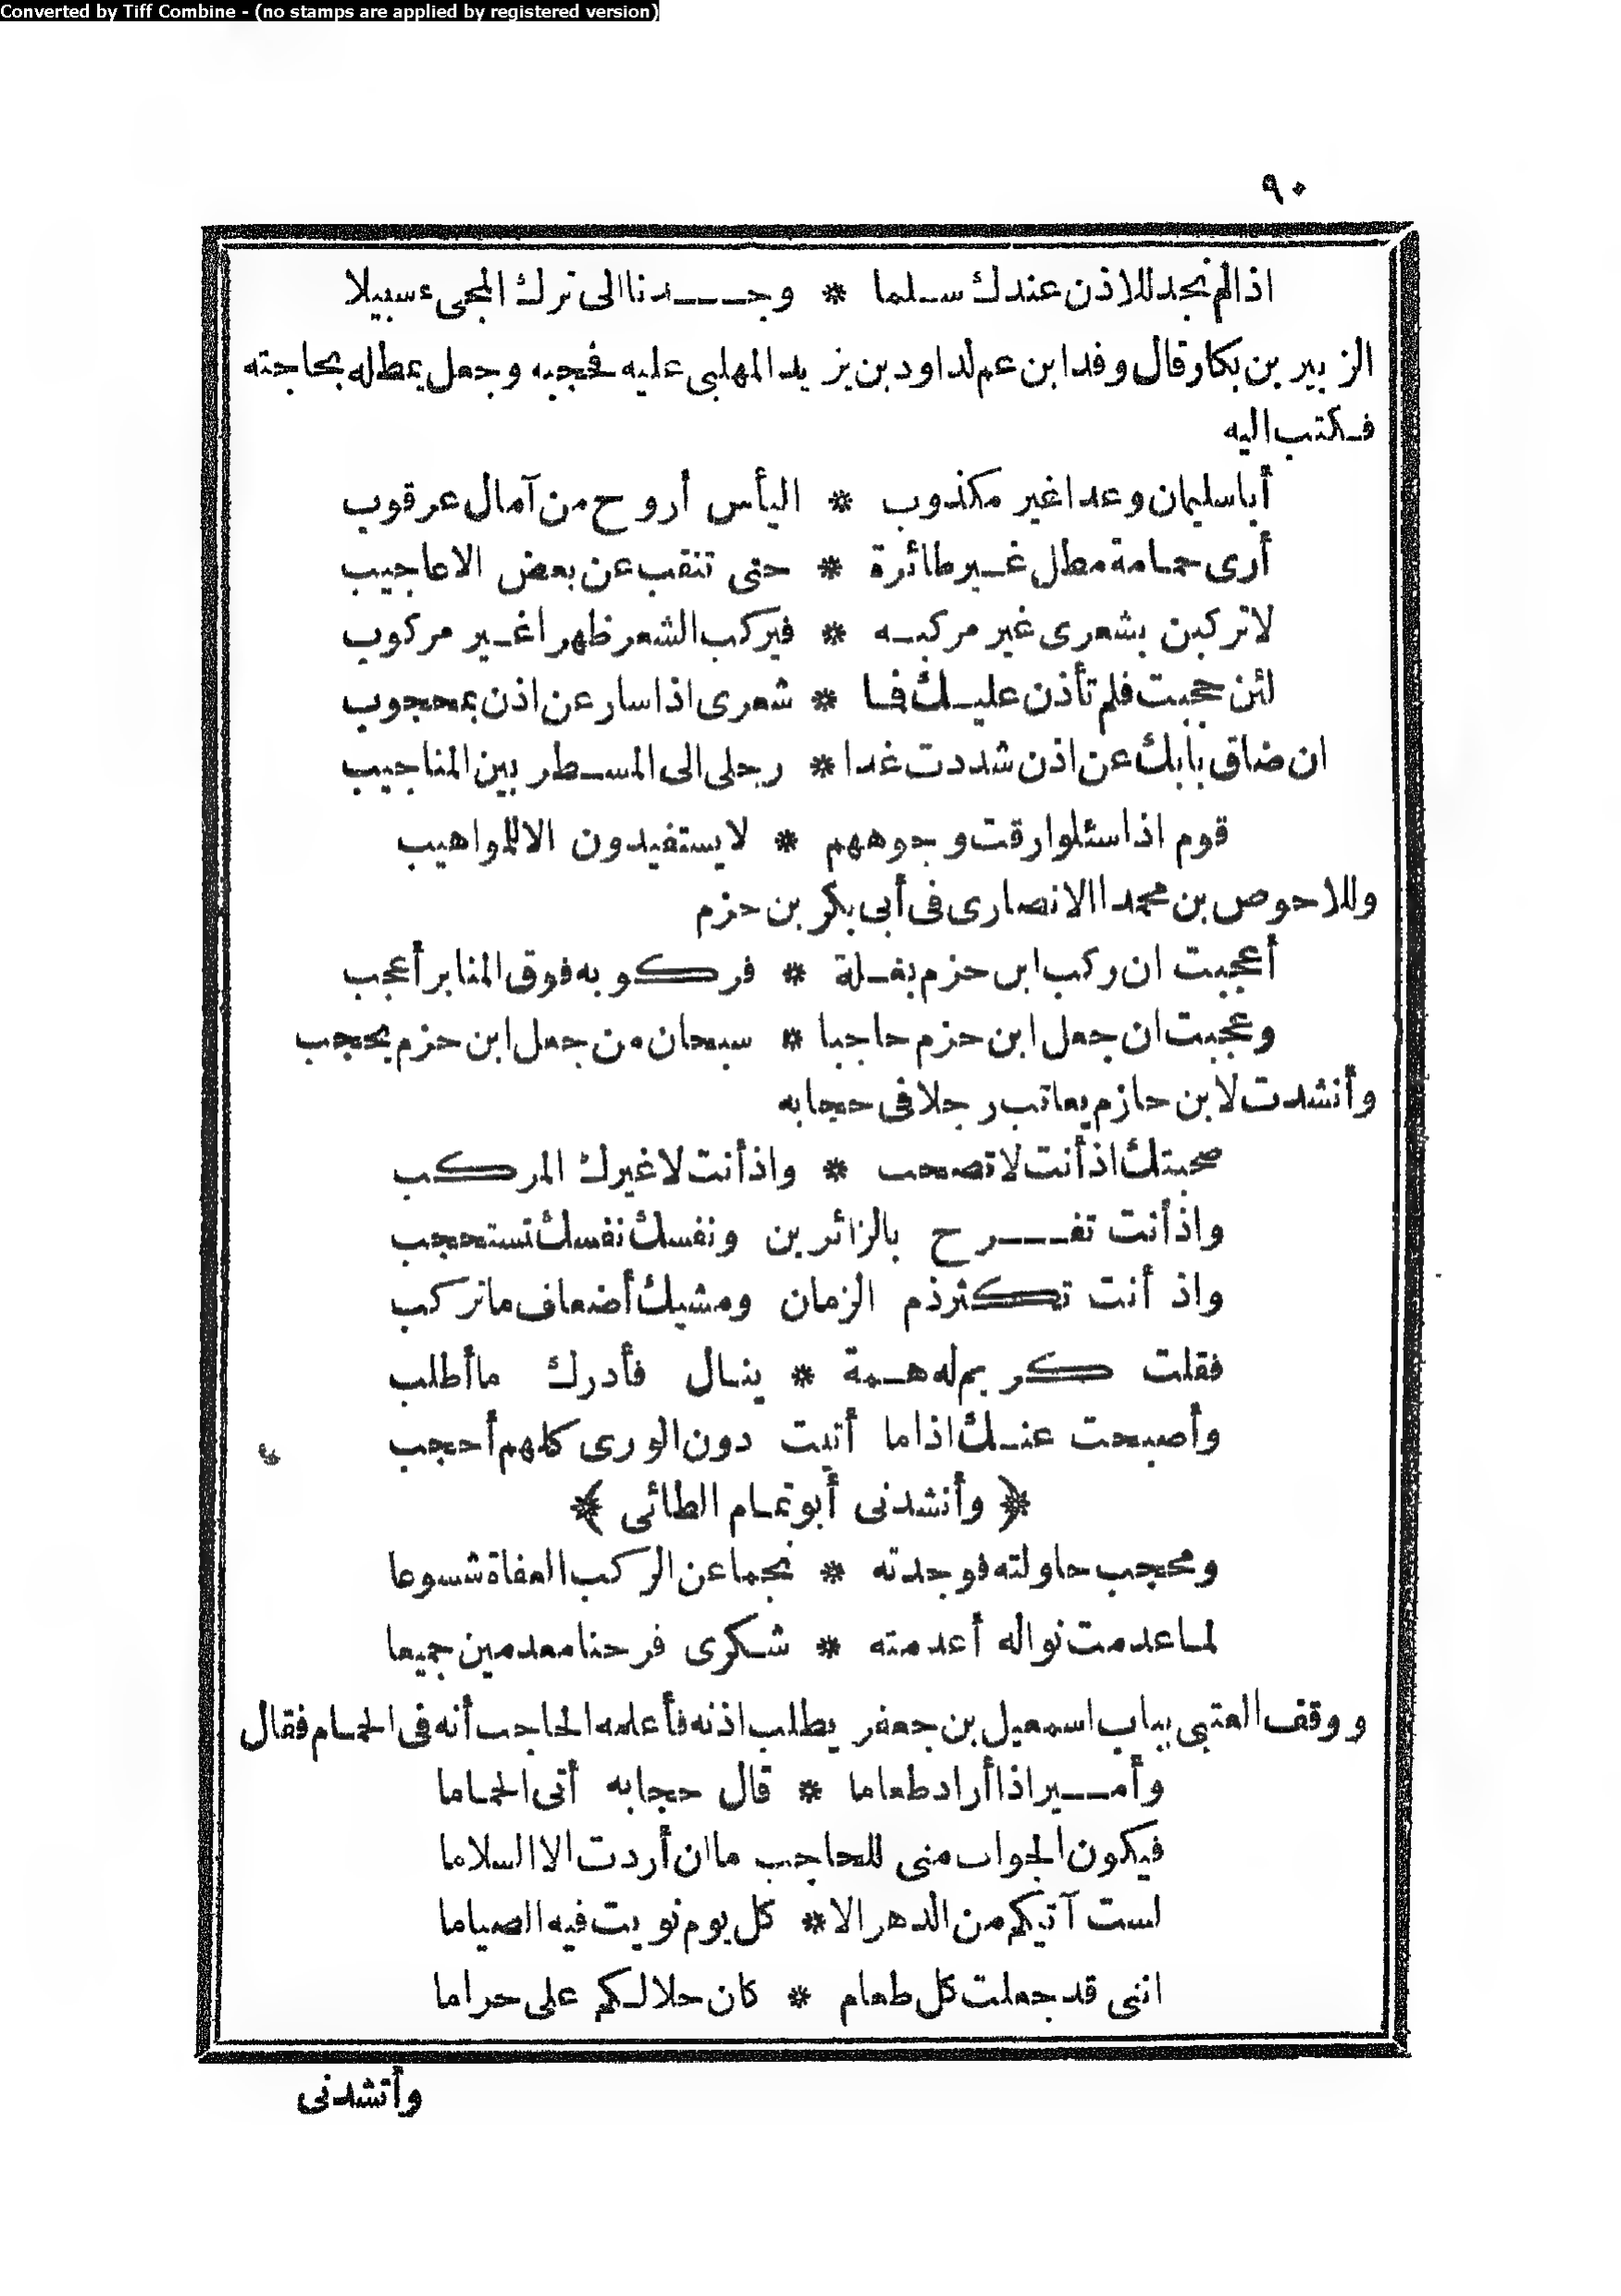 Converted by Tiff Combine - (no stamps are applied by registered version)
٩٠
اذا لم نجد للاذن عندك سلما * وجدنا الى ترك المجىء سبيلا
الزبير بن بكار قال وفد ابن عم لداود بن يزيد المهلبى عليه فحجبه وجعل يمطله بحاجته
فكتب اليه
أبا سليمان وعدا غير مكذوب * اليأس أروح من آمال عرقوب
أرى حمامة مطل غير طائرة * حتى تنقب عن بعض الاعاجيب
لا تركبن بشعرى غير مركبه * فيركب الشعر ظهرا غير مركوب
لئن حجبت فلم تأذن عليك فما * شعرى اذا سار عن اذن بمحجوب
ان ضاق بابك عن اذن شددت غدا * رجلى الى المسطر بين المناجيب
قوم اذا سئلوا رقت وجوههم * لا يستفيدون الا للمواهيب
وللاحوص بن محمد الانصارى فى أبى بكر بن حزم
أعجبت ان ركب ابن حزم بغلة * فركوبه فوق المنابر أعجب
وعجبت ان جعل ابن حزم حاجبا * سبحان من جعل ابن حزم يحجب
وأنشدت لابن حازم يعاتب رجلا فى حجابه
صحبتك اذ أنت لا تصحب * واذ أنت لا غيرك المركب
واذ أنت تفرح بالزائرين ونفسك نفسك تستحجب
واذ أنت تكثر ذم الزمان ومشيك أضعاف ما تركب
فقلت كريم له همة * ينال فأدرك ما أطلب
وأصبحت عنك اذا ما أتيت دون الورى كلهم أحجب
﴿ وأنشدنى أبو تمام الطائى ﴾
ومحجب حاولته فوجدته * نجما عن الركب العفاة شسوعا
لما عدمت نواله أعدمته * شكرى فرحنا معدمين جميعا
ووقف العتبى بباب اسمعيل بن جعفر يطلب اذنه فأعلمه الحاجب أنه فى الحمام فقال
وأمير اذا أراد طعاما * قال حجابه أتى الحماما
فيكون الجواب منى للحاجب ما ان أردت الا السلاما
لست آتيكم من الدهر الا * كل يوم نويت فيه الصياما
اننى قد جعلت كل طعام * كان حلالكم على حراما
وأنشدنى